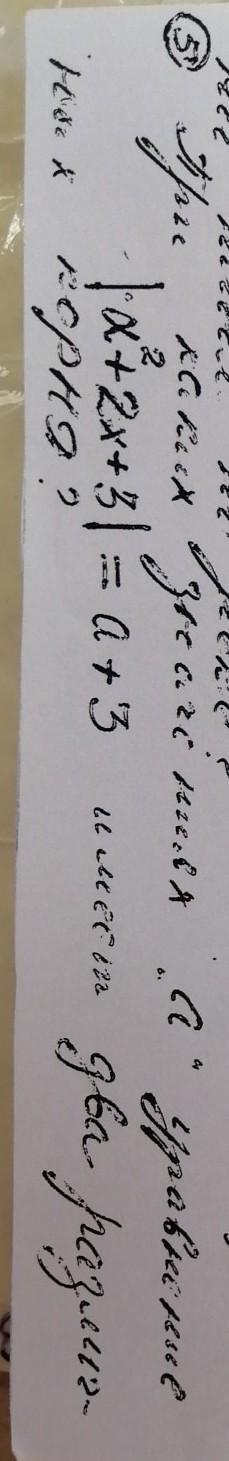 ⑤ При каких значениях "а" уравнение
|x² + 2x + 3| = a + 3 имеет два различ-
ных корня?